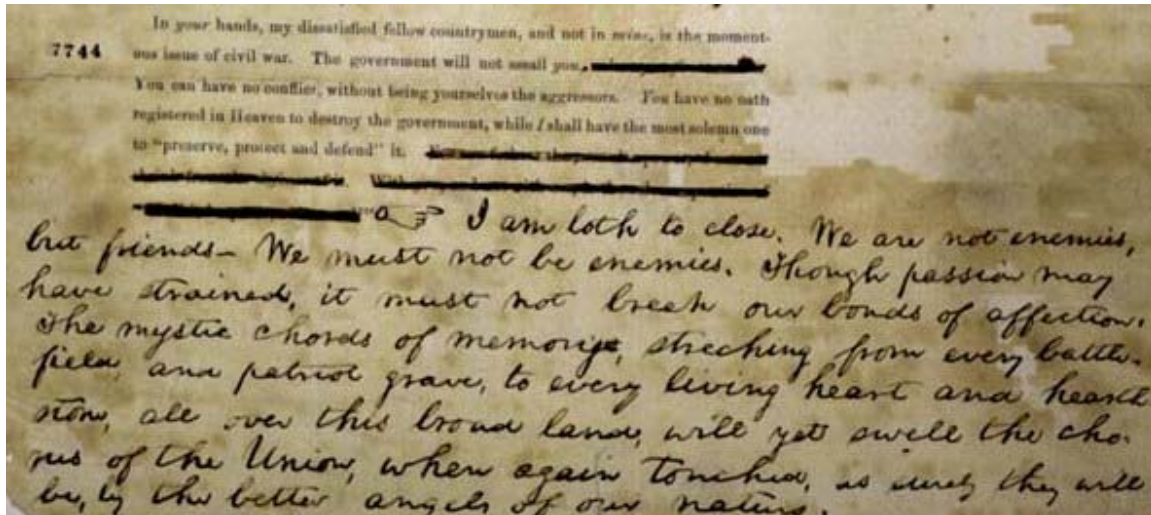 In your hands, my dissatisfied fellow countrymen, and not in mine, is the moment-
7744 ous issue of civil war. The government will not assail you.
You can have no conflict, without being yourselves the aggressors. You have no oath
registered in Heaven to destroy the government, while I shall have the most solemn one
to "preserve, protect and defend" it.
I am loth to close. We are not enemies,
but friends— We must not be enemies. Though passion may
have strained, it must not break our bonds of affection.
The mystic chords of memory, streching from every battle-
field, and patriot grave, to every living heart and hearth
stone, all over this broad land, will yet swell the cho-
rus of the Union, when again touched, as surely they will
be, by the better angels of our nature.